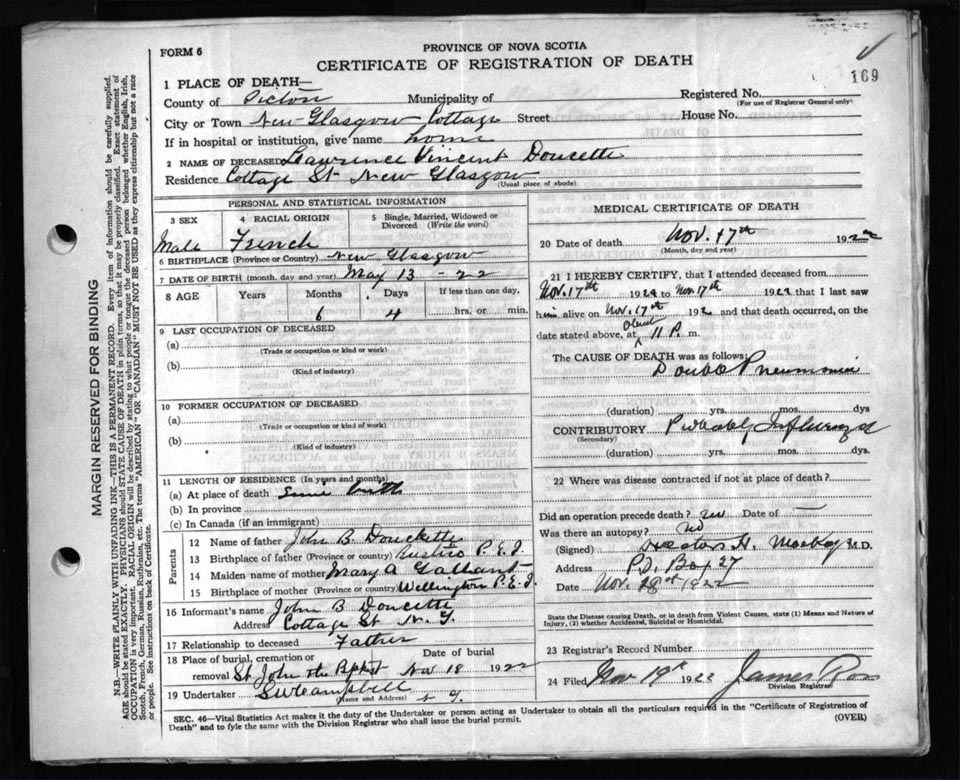 169
FORM 6
PROVINCE OF NOVA SCOTIA
CERTIFICATE OF REGISTRATION OF DEATH
1 PLACE OF DEATH—
County of Pictou Municipality of
Registered No.
(For use of Registrar General only)
City or Town New Glasgow Cottage Street House No.
If in hospital or institution, give name home
2 NAME OF DECEASED Lawrence Vincent Doucette
Residence Cottage St New Glasgow
(Usual place of abode)
PERSONAL AND STATISTICAL INFORMATION
3 SEX 4 RACIAL ORIGIN 5 Single, Married, Widowed or Divorced (Write the word)
Male French
6 BIRTHPLACE (Province or Country) New Glasgow
7 DATE OF BIRTH (month, day and year) May 13 - 22
8 AGE Years Months Days If less than one day,
6 4 hrs. or min.
9 LAST OCCUPATION OF DECEASED
(a)
(Trade or occupation or kind or work)
(b)
(Kind of industry)
10 FORMER OCCUPATION OF DECEASED
(a)
(Trade or occupation or kind of work)
(b)
(Kind of industry)
11 LENGTH OF RESIDENCE (In years and months)
(a) At place of death Since birth
(b) In province
(c) In Canada (if an immigrant)
Parents
12 Name of father John B. Douckette
13 Birthplace of father (Province or Country) Rustico P.E.I.
14 Maiden name of mother Mary A Gallant
15 Birthplace of mother (Province or country) Wellington P.E.I.
16 Informant's name John B Doucette
Address Cottage St N. G.
17 Relationship to deceased Father
18 Place of burial, cremation or removal Date of burial
St John the Bptist Nov 18 1922
19 Undertaker SW Campbell N G.
(Name and Address)
MEDICAL CERTIFICATE OF DEATH
20 Date of death Nov. 17th 1922
(Month, day and year)
21 I HEREBY CERTIFY, that I attended deceased from
Nov. 17th 1922 to Nov. 17th 1922 that I last saw
him alive on Nov. 17th 192 and that death occurred, on the
date stated above, at 11 P. m.
The CAUSE OF DEATH was as follows:
Double Pneumonia
(duration) yrs. mos. dys
CONTRIBUTORY Probably Influenza
(Secondary)
(duration) yrs. mos. dys.
22 Where was disease contracted if not at place of death?
Did an operation precede death? no Date of —
Was there an autopsy? no
(Signed) Hector H. M.D.
Address P.O. Box 27
Date Nov. 18th 1922
State the Disease causing Death, or in death from Violent Causes, state (1) Means and Nature of
Injury, (2) whether Accidental, Suicidal or Homicidal.
23 Registrar's Record Number
24 Filed Nov 19th 1922 James Ross
Division Registrar
SEC. 46—Vital Statistics Act makes it the duty of the Undertaker or person acting as Undertaker to obtain all the particulars required in the "Certificate of Registration of
Death" and to fyle the same with the Division Registrar who shall issue the burial permit. (OVER)
MARGIN RESERVED FOR BINDING
N.B.—WRITE PLAINLY WITH UNFADING INK—THIS IS A PERMANENT RECORD. Every item of information should be carefully supplied.
AGE should be stated EXACTLY. PHYSICIANS should STATE CAUSE OF DEATH in plain terms, so that it may be properly classified. Exact statement of
OCCUPATION is very important. RACIAL ORIGIN will be described by stating to what people or tongue the deceased person belonged whether English, Irish,
Scotch, French, German, Russian, Ruthenian, etc. The terms "AMERICAN" OR "CANADIAN" MUST NOT BE USED as they express citizenship but not a race
or people. See instructions on back of Certificate.